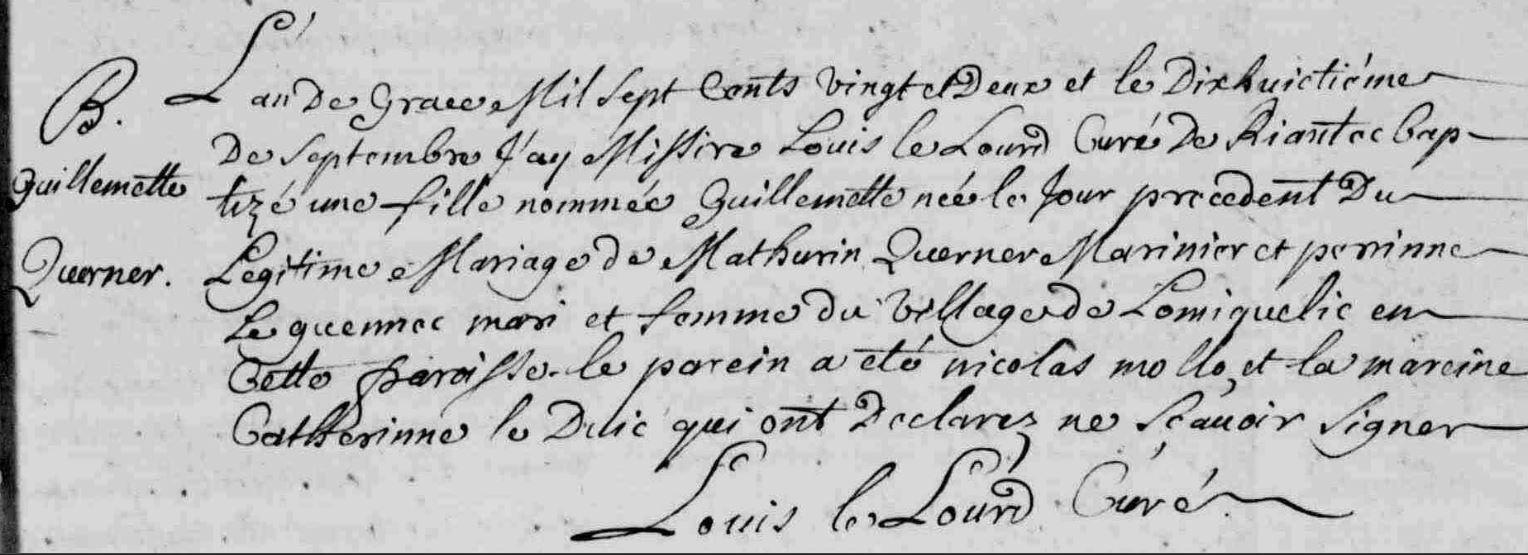 B.
Guillemette
Querner.
L'an De Grace Mil Sept Cents vingt et Deux et le Dixhuictiéme
De Septembre J'ay Missire Louis le Lourd Curé De Riantec bap-
tizé une fille nommée Guillemette née le Jour precedent Du
Legitime Mariage de Mathurin Querner Marinier et perinne
Le guennec mari et femme du village de Lomiquelic en
Cette paroisse. le parein a eté nicolas mollo, et la mareine
Catherinne le Dulic qui ont Declarez ne sçauoir signer
Louis le Lourd Curé